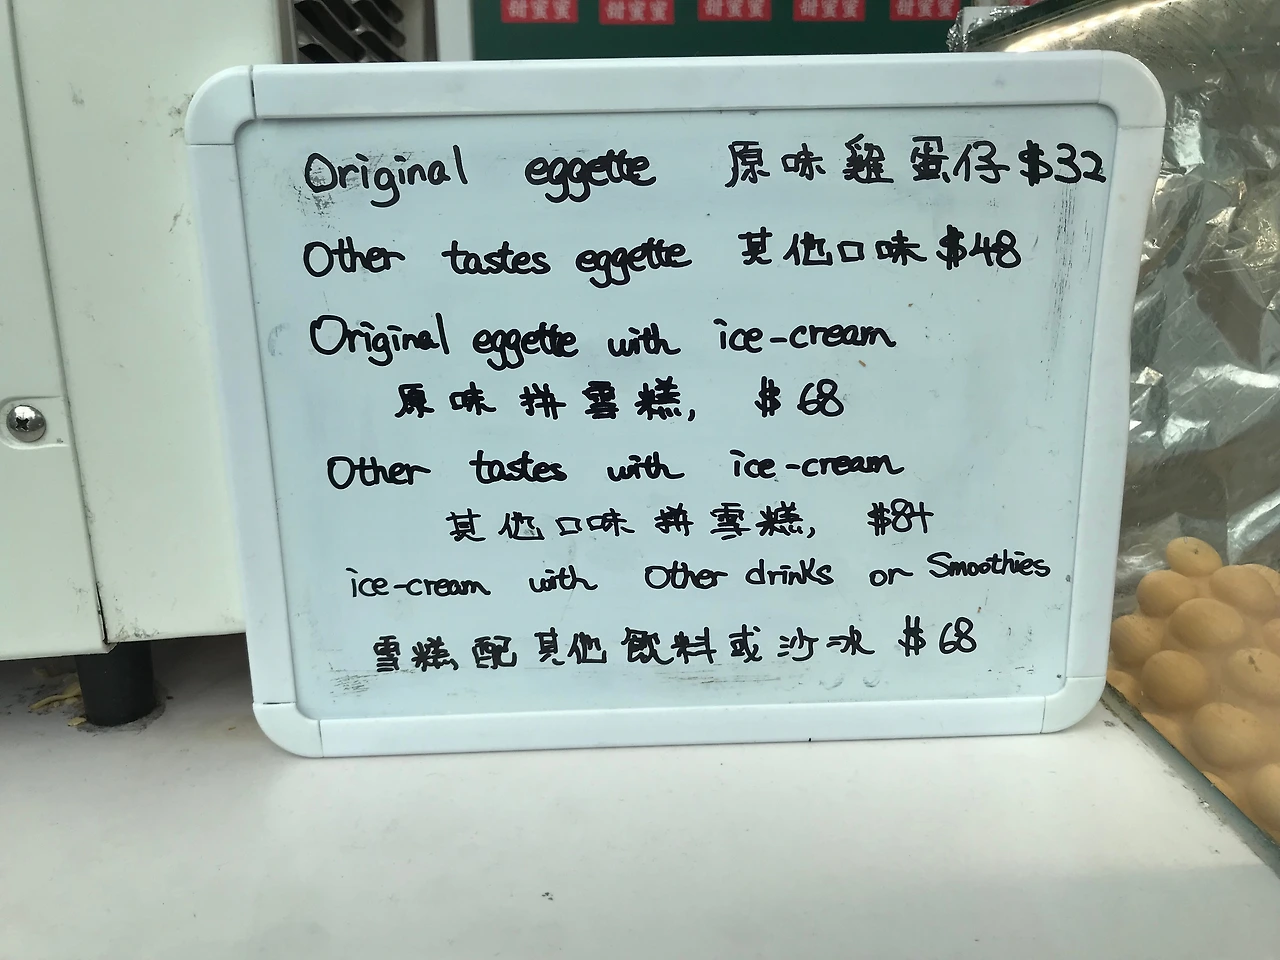 甜蜜蜜 甜蜜蜜 甜蜜蜜 甜蜜蜜 甜蜜蜜
Original eggette 原味雞蛋仔 $32
Other tastes eggette 其他口味 $48
Original eggette with ice-cream
原味拼雪糕, $68
Other tastes with ice-cream
其他口味拼雪糕, $84
ice-cream with Other drinks or Smoothies
雪糕配其他飲料或沙冰 $68